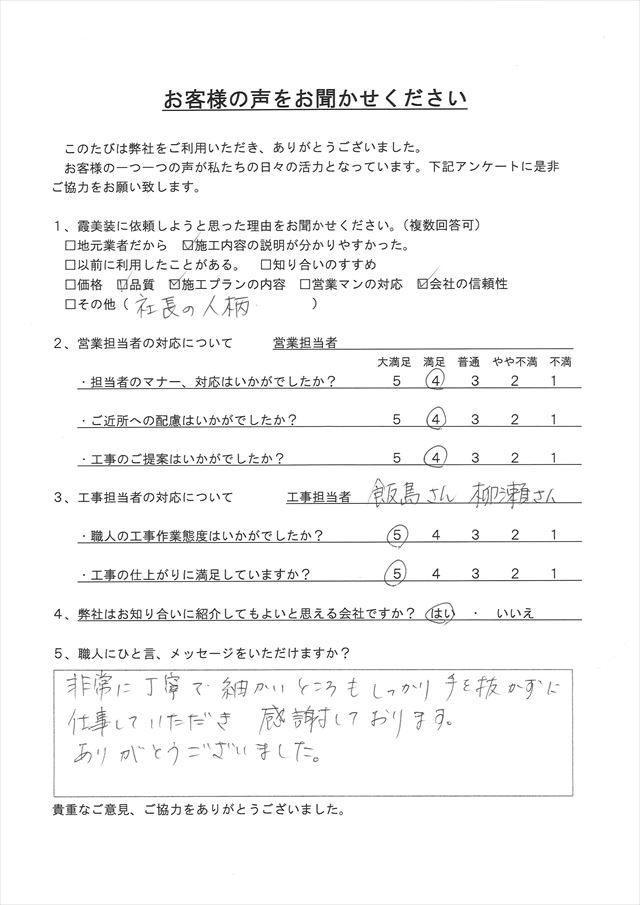 お客様の声をお聞かせください
このたびは弊社をご利用いただき、ありがとうございました。
お客様の一つ一つの声が私たちの日々の活力となっています。下記アンケートに是非
ご協力をお願い致します。
1、霞美装に依頼しようと思った理由をお聞かせください。（複数回答可）
□地元業者だから ☑施工内容の説明が分かりやすかった。
□以前に利用したことがある。 □知り合いのすすめ
□価格 ☑品質 ☑施工プランの内容 □営業マンの対応 ☑会社の信頼性
□その他（ 社長の人柄 ）
2、営業担当者の対応について 営業担当者
大満足 満足 普通 やや不満 不満
・担当者のマナー、対応はいかがでしたか？ 5 4 3 2 1
・ご近所への配慮はいかがでしたか？ 5 4 3 2 1
・工事のご提案はいかがでしたか？ 5 4 3 2 1
3、工事担当者の対応について 工事担当者 飯島さん 柳瀬さん
・職人の工事作業態度はいかがでしたか？ 5 4 3 2 1
・工事の仕上がりに満足していますか？ 5 4 3 2 1
4、弊社はお知り合いに紹介してもよいと思える会社ですか？ はい ・ いいえ
5、職人にひと言、メッセージをいただけますか？
非常に丁寧で細かいところもしっかり手を抜かずに
仕事していただき 感謝しております。
ありがとうございました。
貴重なご意見、ご協力をありがとうございました。